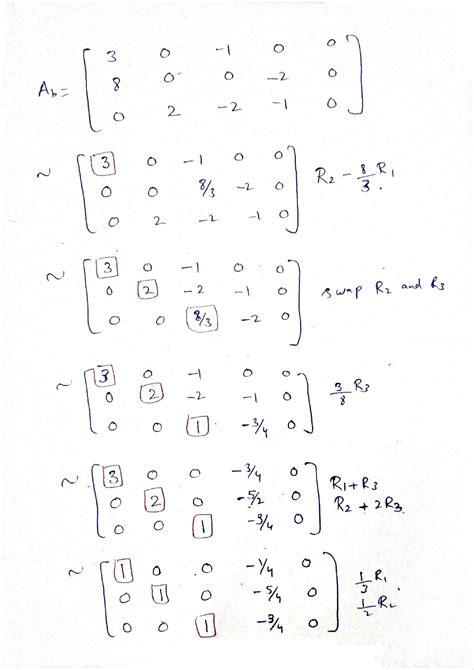 A_b = [ 3 0 -1 0 0
8 0 0 -2 0
0 2 -2 -1 0 ]
~ [ 3 0 -1 0 0
0 0 8/3 -2 0
0 2 -2 -1 0 ] R2 - 8/3 R1.
~ [ 3 0 -1 0 0
0 2 -2 -1 0
0 0 8/3 -2 0 ] swap R2 and R3
~ [ 3 0 -1 0 0
0 2 -2 -1 0
0 0 1 -3/4 0 ] 3/8 R3
~ [ 3 0 0 -3/4 0
0 2 0 -5/2 0
0 0 1 -3/4 0 ] R1 + R3
R2 + 2R3.
~ [ 1 0 0 -1/4 0
0 1 0 -5/4 0
0 0 1 -3/4 0 ] 1/3 R1
1/2 R2